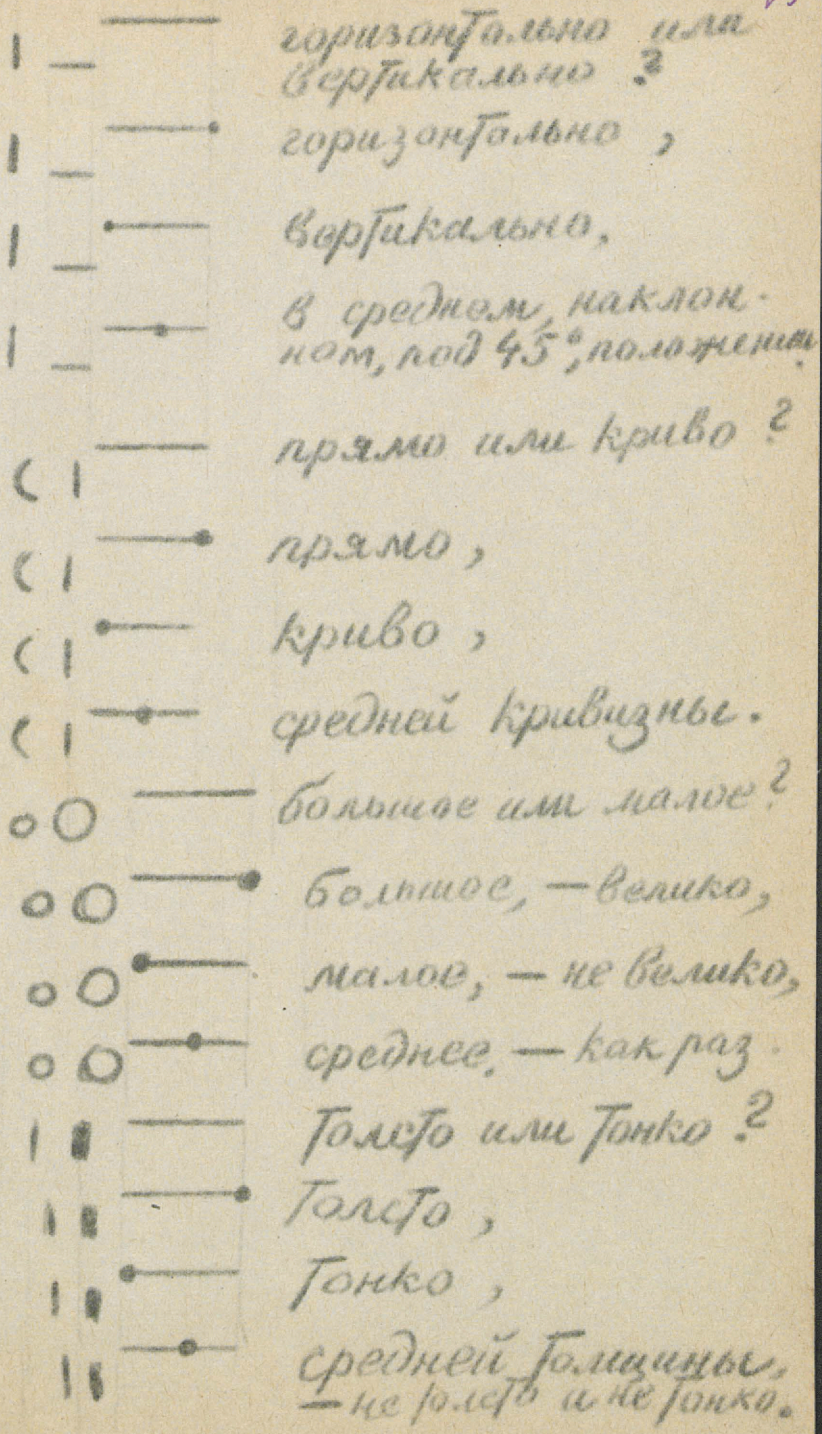 горизонтально или
вертикально ?
горизонтально ,
вертикально,
в среднем, наклон-
ном, под 45°, положении.
прямо или криво ?
прямо ,
криво ,
средней кривизны.
большое или малое?
большое, — велико,
малое, — не велико,
среднее. — как раз.
толсто или тонко ?
толсто ,
тонко ,
средней толщины,
— не толсто и не тонко.